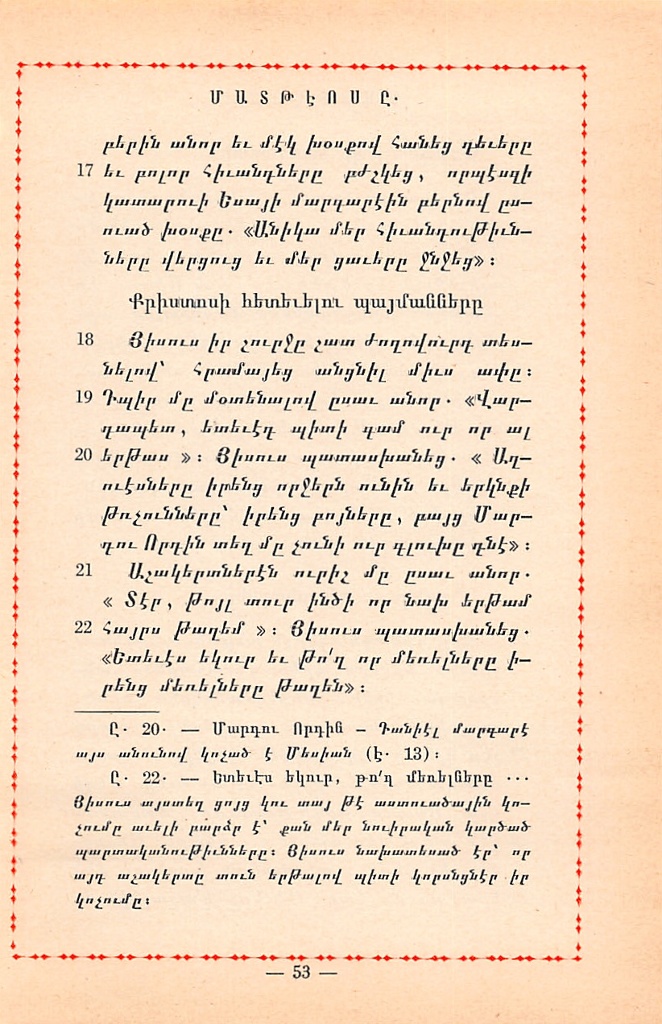 ՄԱՏԹԷՈՍ Ը․
բերին անոր եւ մէկ խօսքով հանեց դեւերը
17 եւ բոլոր հիւանդները բժշկեց, որպէսզի
կատարուի Եսայի մարգարէին բերնով ըս–
ուած խօսքը․ «Անիկա մեր հիւանդութիւն–
ները վերցուց եւ մեր ցաւերը ջնջեց»։
Քրիստոսի հետեւելու պայմանները
18 Յիսուս իր շուրջը շատ ժողովուրդ տես–
նելով՝ հրամայեց անցնիլ միւս ափը։
19 Դպիր մը մօտենալով ըսաւ անոր․ «Վար–
դապետ, ետեւէդ պիտի գամ ուր որ ալ
20 երթաս »։ Յիսուս պատասխանեց․ « Աղ–
ուէսները իրենց որջերն ունին եւ երկնքի
թռչունները՝ իրենց բոյները, բայց Մար–
դու Որդին տեղ մը չունի ուր գլուխը դնէ»։
21 Աշակերտներէն ուրիշ մը ըսաւ անոր․
« Տէր, թոյլ տուր ինծի որ նախ երթամ
22 հայրս թաղեմ »։ Յիսուս պատասխանեց․
«Ետեւէս եկուր եւ թո՛ղ որ մեռելները ի–
րենց մեռելները թաղեն»։
Ը․ 20․ — Մարդու Որդին – Դանիէլ մարգարէ
այս անունով կոչած է Մեսիան (է․ 13)։
Ը․ 22․ — Ետեւէս եկուր, թո՛ղ մեռելները ...
Յիսուս այստեղ ցոյց կու տայ թէ աստուածային կո–
չումը աւելի բարձր է՝ քան մեր նուիրական կարծած
պարտականութիւնները։ Յիսուս նախատեսած էր՝ որ
այդ աշակերտը տուն երթալով պիտի կորսնցնէր իր
կոչումը։
— 53 —